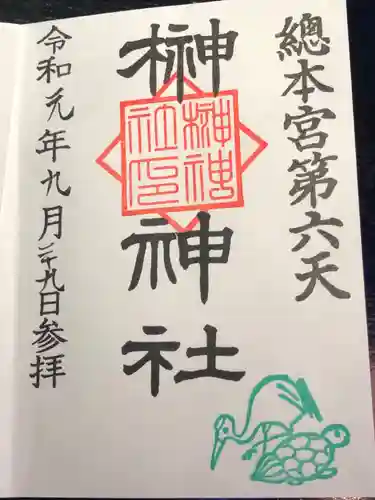 總本宮第六天
榊神社
榊神社印
令和元年九月二十九日参拝